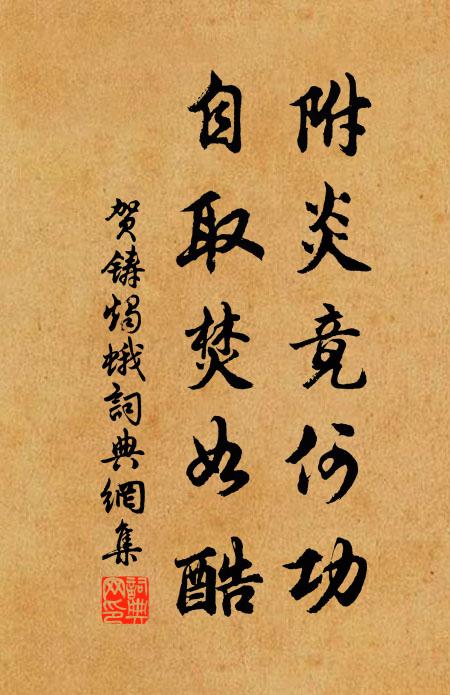 附炎竟何功
自取焚如酷
贺鑄燭蛾詞典網集
詞典
网印